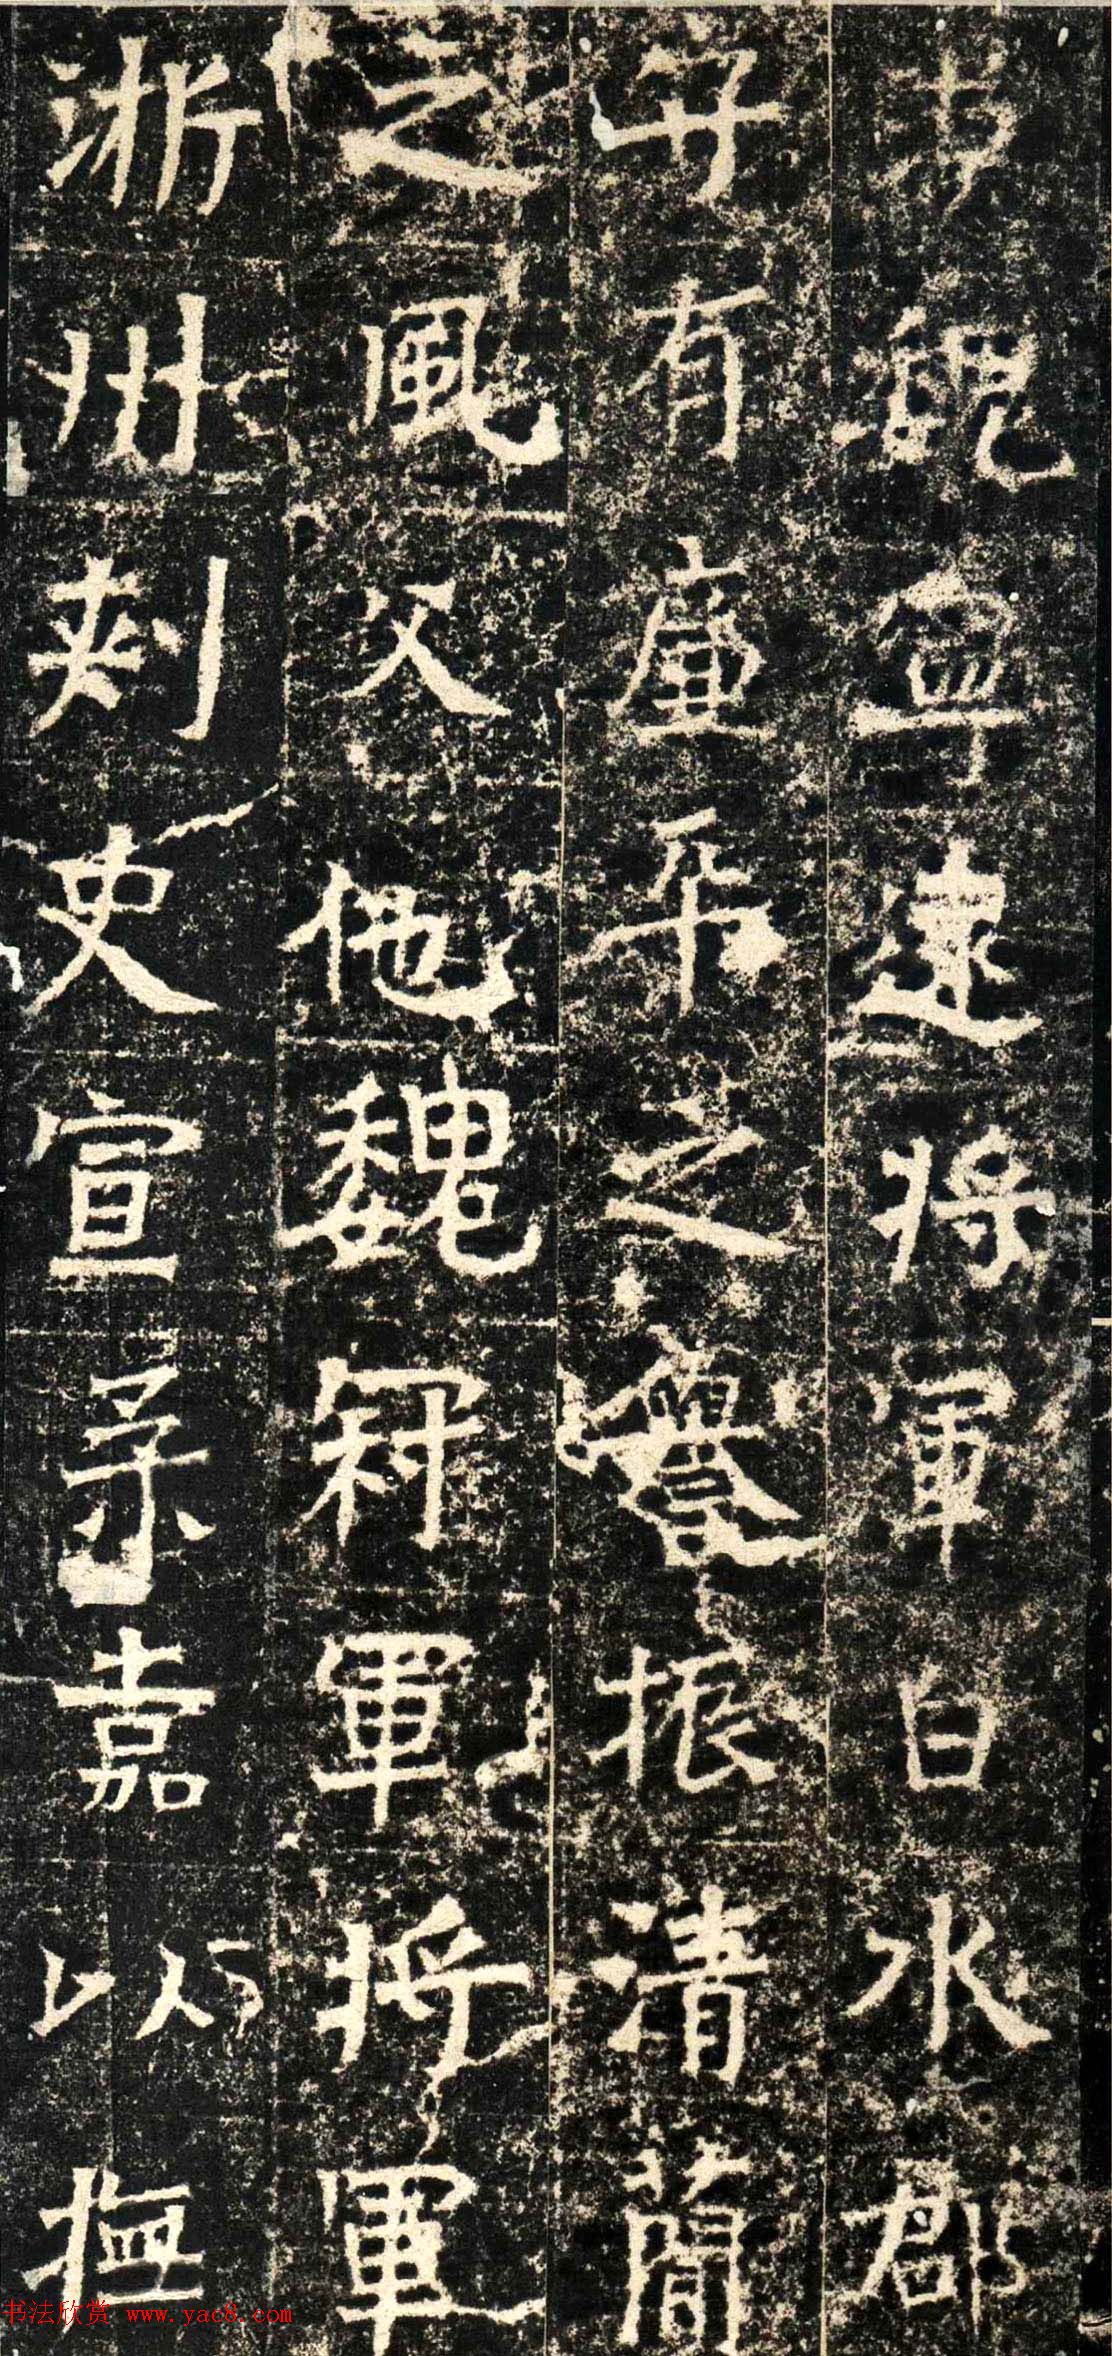 魏寧遠將軍白水郡
守有廉平之譽振清簡
之風父他魏冠軍將軍
淅州刺史宣柔嘉以撫
书法欣赏 www.yac8.com